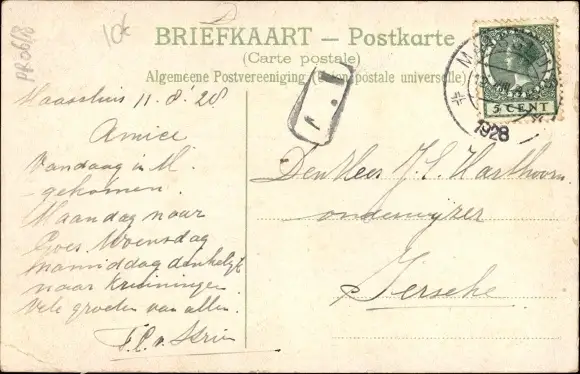 PR06/18
10k
BRIEFKAART — Postkarte
(Carte postale)
Algemeene Postvereeniging (Union postale universelle)
5 CENT
1928
Maassluis 11.8.'28
Amice
Vandaag in M.
gekomen.
Maandag naar
Goes. Woensdag
namiddag denkelijk
naar Kruiningen.
Vele groeten van allen.
Den Heer J. C. Harthoorn
onderwijzer
Jerseke